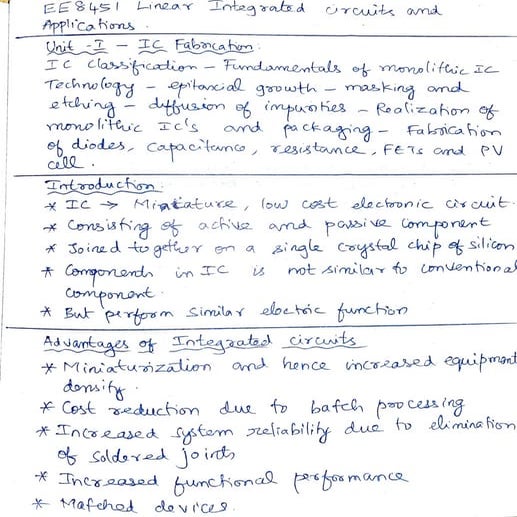 EE8451 Linear Integrated circuits and
Applications.
Unit - I - IC Fabrication.
IC Classification - Fundamentals of monolithic IC
Technology - epitaxial growth - masking and
etching - diffusion of impurities - Realization of
monolithic IC's and packaging - Fabrication
of diodes, capacitance, resistance, FETs and PV
cell.
Introduction.
* IC → Miniature, low cost electronic circuit.
* Consisting of active and passive component
* Joined together on a single crystal chip of silicon
* Components in IC is not similar to conventional
component.
* But perform similar electric function
Advantages of Integrated circuits
* Miniaturization and hence increased equipment
density.
* Cost reduction due to batch processing
* Increased system reliability due to elimination
of soldered joints
* Increased functional performance
* Matched devices.